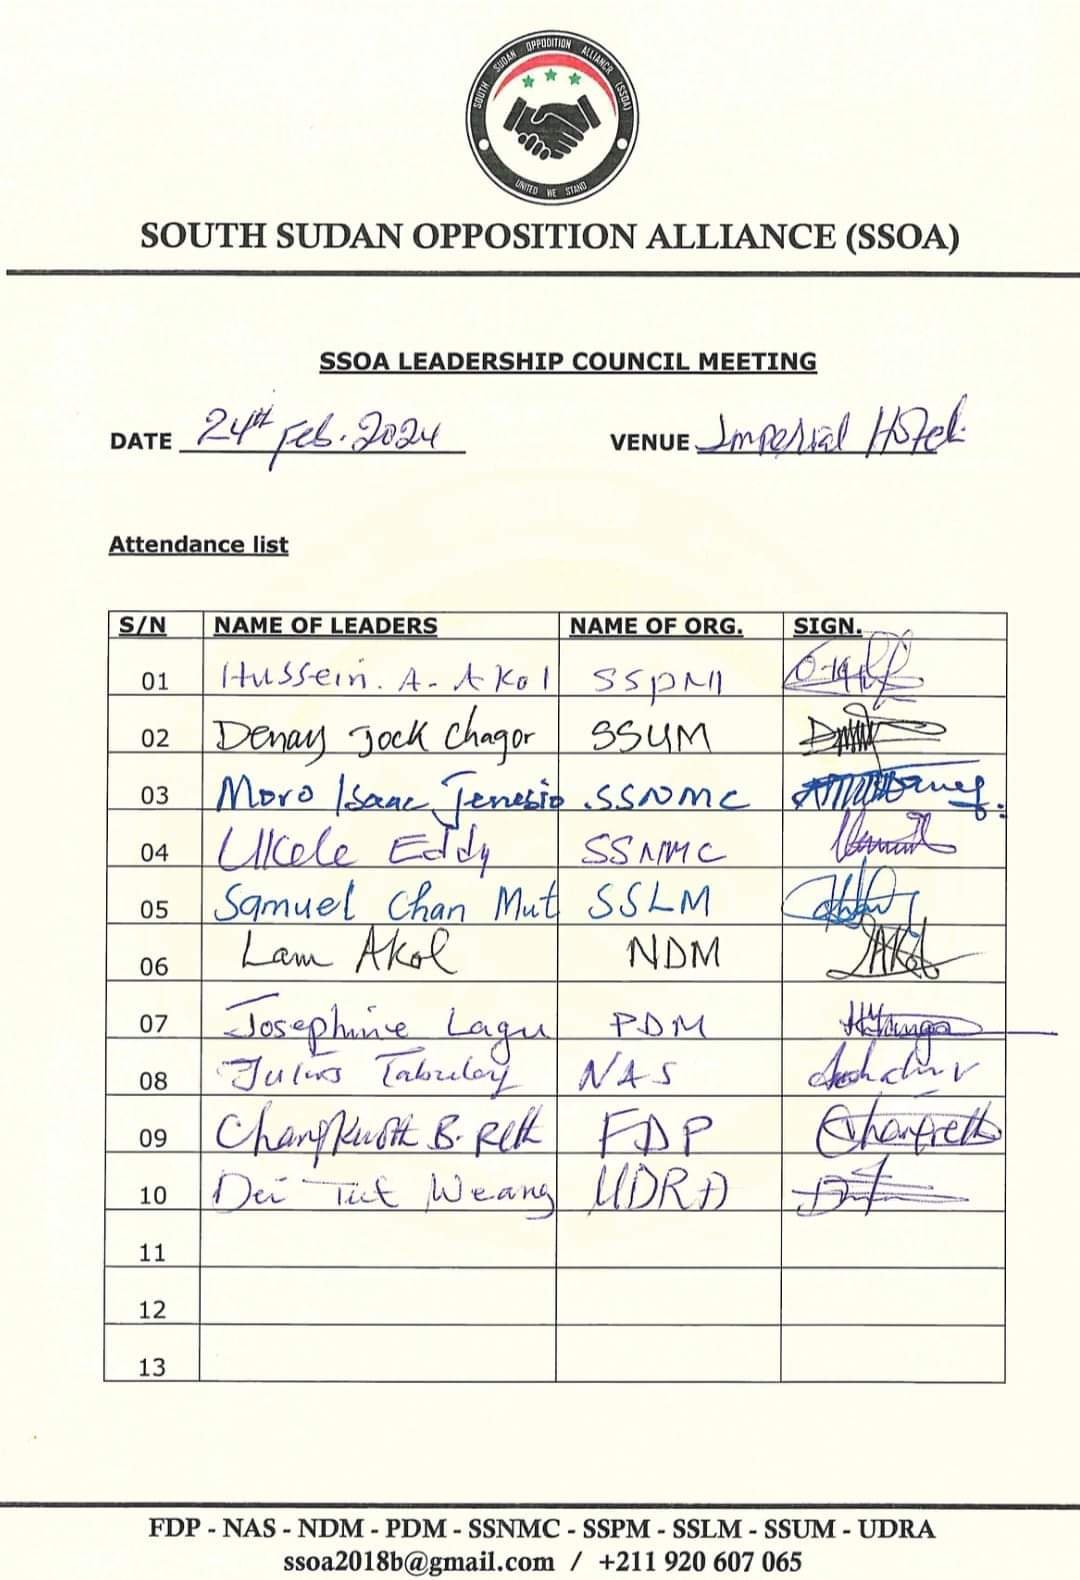 SOUTH SUDAN OPPODITION ALLIANCR (SSOA)
UNITED WE STAND
SOUTH SUDAN OPPOSITION ALLIANCE (SSOA)
SSOA LEADERSHIP COUNCIL MEETING
DATE 24th Feb. 2024 VENUE Imperial Hotel
Attendance list
S/N NAME OF LEADERS NAME OF ORG. SIGN.
01 Hussein. A. Akol SSPM
02 Denay Jock Chagor SSUM
03 Moro Isaac Jenesio SSNMC
04 Ukele Eddy SSNMC
05 Samuel Chan Mut SSLM
06 Lam Akol NDM LAkol
07 Josephine Lagu PDM
08 Julius Tabuley NAS
09 Changkuoth B. Reth FDP
10 Dei Tut Weang UDRA
11
12
13
FDP - NAS - NDM - PDM - SSNMC - SSPM - SSLM - SSUM - UDRA
ssoa2018b@gmail.com / +211 920 607 065